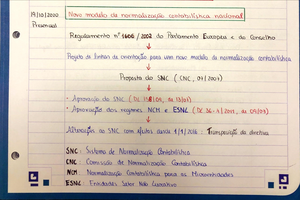 19/10/2020
Presencial
Novo modelo de normalização contabilística nacional
Regulamento nº 1606/2002 do Parlamento Europeu e do Conselho
↓
Projeto de linhas de orientação para um novo modelo de normalização contabilística
↓
Proposta do SNC (CNC, 07/2007)
↓
• Aprovação do SNC (DL 158/09, de 13/07)
• Aprovação dos regimes NCM e ESNL
↓
Alteração ao SNC com efeitos desde 1/1/2016 : Transposição da directiva
SNC: Sistema de Normalização Contabilística
CNC: Comissão de Normalização Contabilística
NCM: Normalização Contabilística para as Microentidades
ESNL: Entidades Setor Não Lucrativo